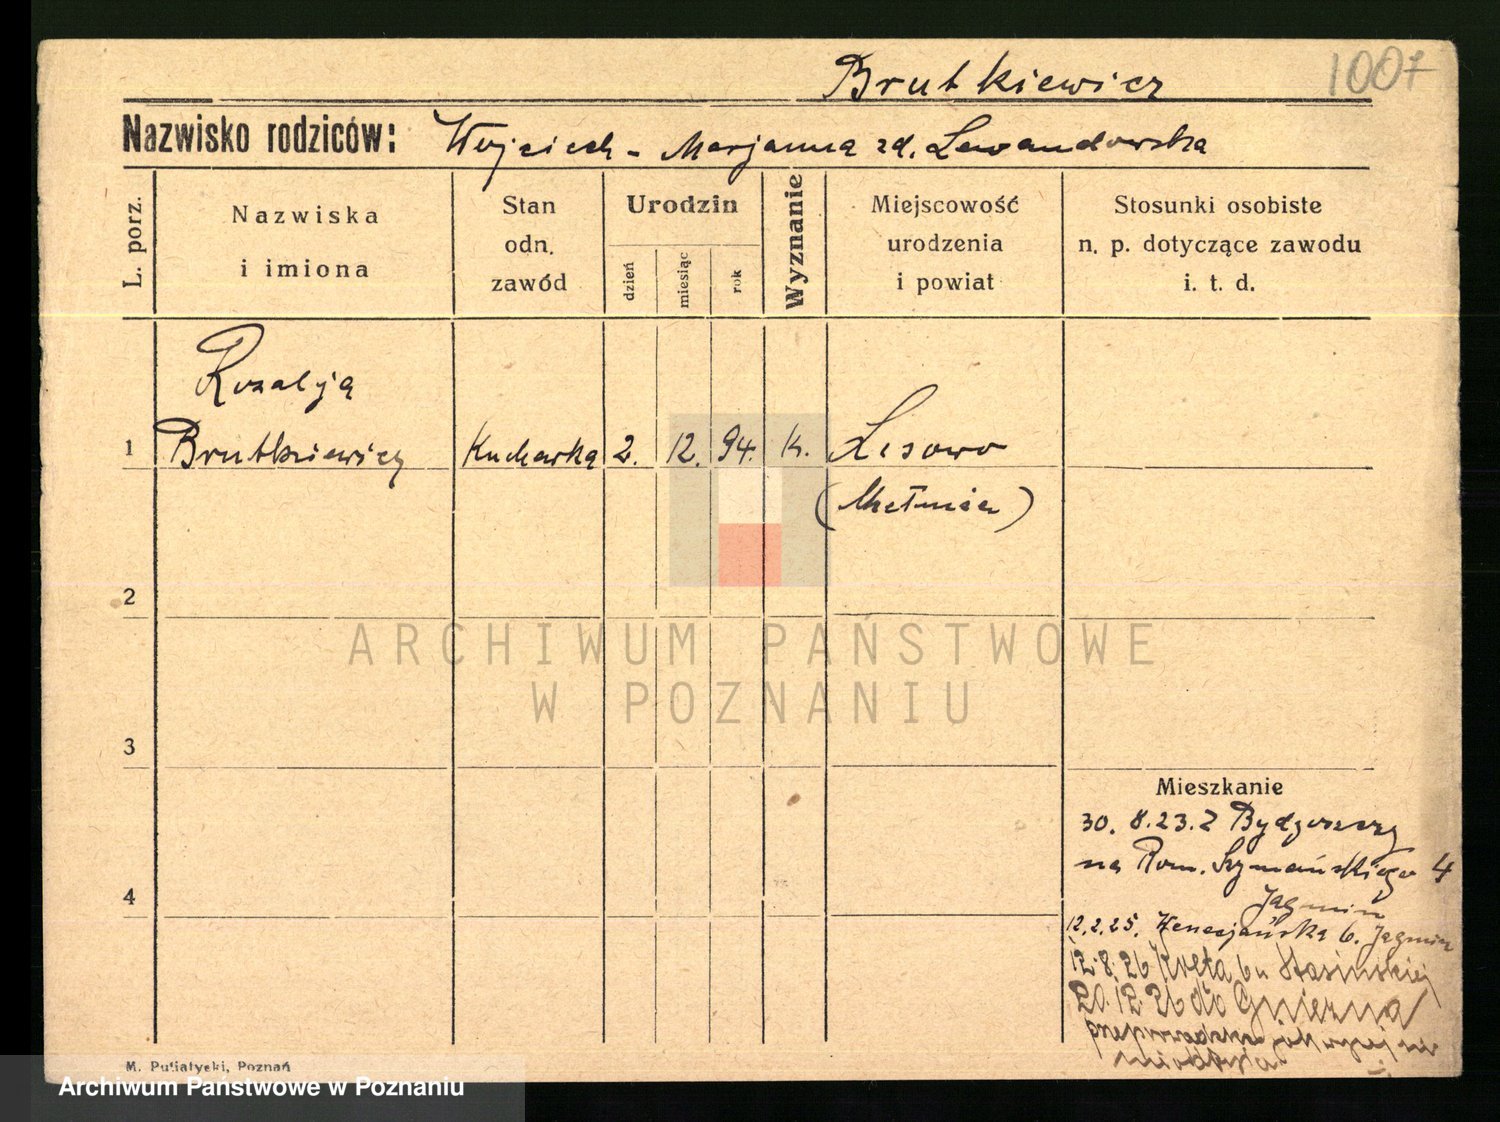 Brutkiewicz
1007
Nazwisko rodziców: Wojciech - Marjanna zd. Lewandowska
L. porz.
Nazwiska
i imiona
Stan
odn.
zawód
Urodzin
dzień
miesiąc
rok
Wyznanie
Miejscowość
urodzenia
i powiat
Stosunki osobiste
n. p. dotyczące zawodu
i. t. d.
Rozalja
1 Brutkiewicz Kucharka 2. 12. 94. k. Lisowo
2
ARCHIWUM PAŃSTWOWE
W POZNANIU
3
Mieszkanie
30. 8.23. Z Bydgoszczy
na Rom. Szymańskiego 4
Jagmin
4
12.2.25. Wenecjańska 6. Jagmin
12.8.26 Kręta 6 u Stasińskiej
20.12.26 do Gniezna
M. Putiatycki, Poznań
Archiwum Państwowe w Poznaniu